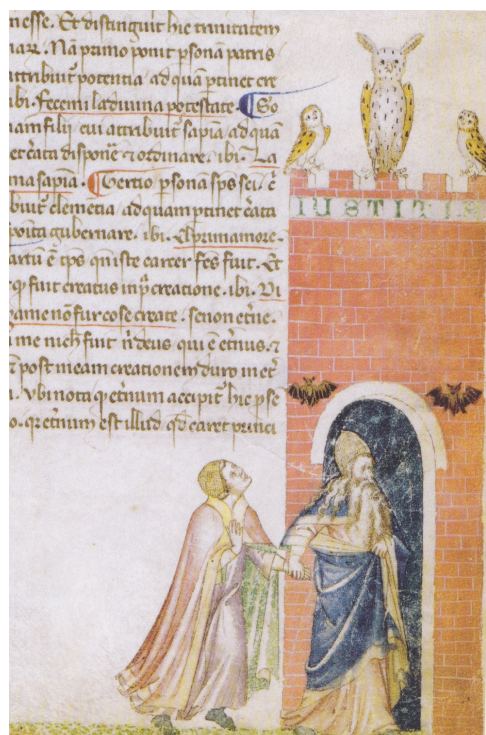 n esse. Et distinguit hic trinitatem
nar. Nā pimo ponit psonā patris
attribuit̄ potentia ad quā ptinet cre
ibi. fecemi la diuina potestate. ¶ So
am filij cui attribuit̄ sapiā ad quā
et cāta disponē ⁊ ordinare. ibi. La
ma sapiā. ¶ Tertio psonā sps sci. c̄
buit̄ clemētia ad quam ptinet cāta
gubernare. ibi. El primamore.
artū ē tps qn̄ iste carcer fcs fuit. Et
q fuit creatus in pª creatione. ibi. Di
ame nō fur cose create. se non etne.
a me nich̄ fuit n̄ deus qui ē et̄nus. ⁊
post meam creationem duro in et̄
. Vbi nota q et̄num accipit̄ hic p se
o. q et̄num est illud qd caret princi
IUSTITIA